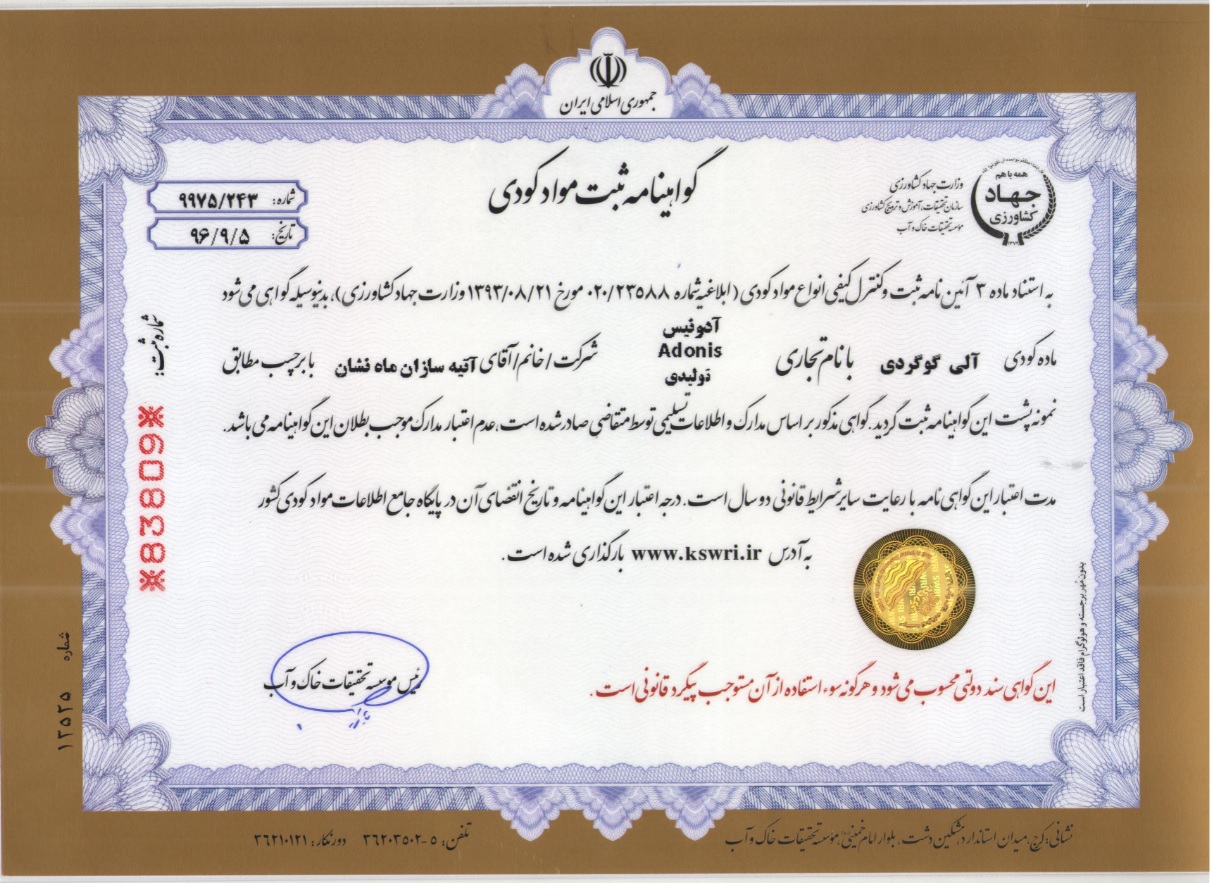 جمهوری اسلامی ایران
همه با هم
جهاد
کشاورزی
وزارت جهاد کشاورزی
سازمان تحقیقات، آموزش و ترویج کشاورزی
موسسه تحقیقات خاک و آب
گواهینامه ثبت مواد کودی
شماره: ۹۹۷۵/۲۴۳
تاریخ: ۹۶/۹/۵
به استناد ماده ۳ آئین نامه ثبت و کنترل کیفی انواع مواد کودی (ابلاغیه شماره ۰۲۰/۲۳۵۸۸ مورخ ۱۳۹۳/۰۸/۲۱ وزارت جهاد کشاورزی)، بدینوسیله گواهی می شود
ماده کودی آلی گوگردی با نام تجاری آدونیس Adonis تولیدی شرکت / خانم / آقای آتیه سازان ماه نشان با برچسب مطابق
نمونه پشت این گواهینامه ثبت گردید. گواهی مذکور بر اساس مدارک و اطلاعات تسلیمی توسط متقاضی صادر شده است، عدم اعتبار مدارک موجب بطلان این گواهینامه می باشد.
مدت اعتبار این گواهی نامه با رعایت سایر شرایط قانونی دو سال است. درجه اعتبار این گواهینامه و تاریخ انقضای آن در پایگاه جامع اطلاعات مواد کودی کشور
به آدرس www.kswri.ir بارگذاری شده است.
این گواهی سند دولتی محسوب می شود و هرگونه سوء استفاده از آن مستوجب پیگرد قانونی است.
رئیس موسسه تحقیقات خاک و آب
شماره ثبت:
※83809※
بدون مهر برجسته و هولوگرام فاقد اعتبار است
شماره ۱۳۵۲۵
نشانی: کرج، میدان استاندارد، مشکین دشت، بلوار امام خمینی، موسسه تحقیقات خاک و آب
تلفن: ۵ -۳۶۲۰۳۵۰۲ دورنگار: ۳۶۲۱۰۱۲۱